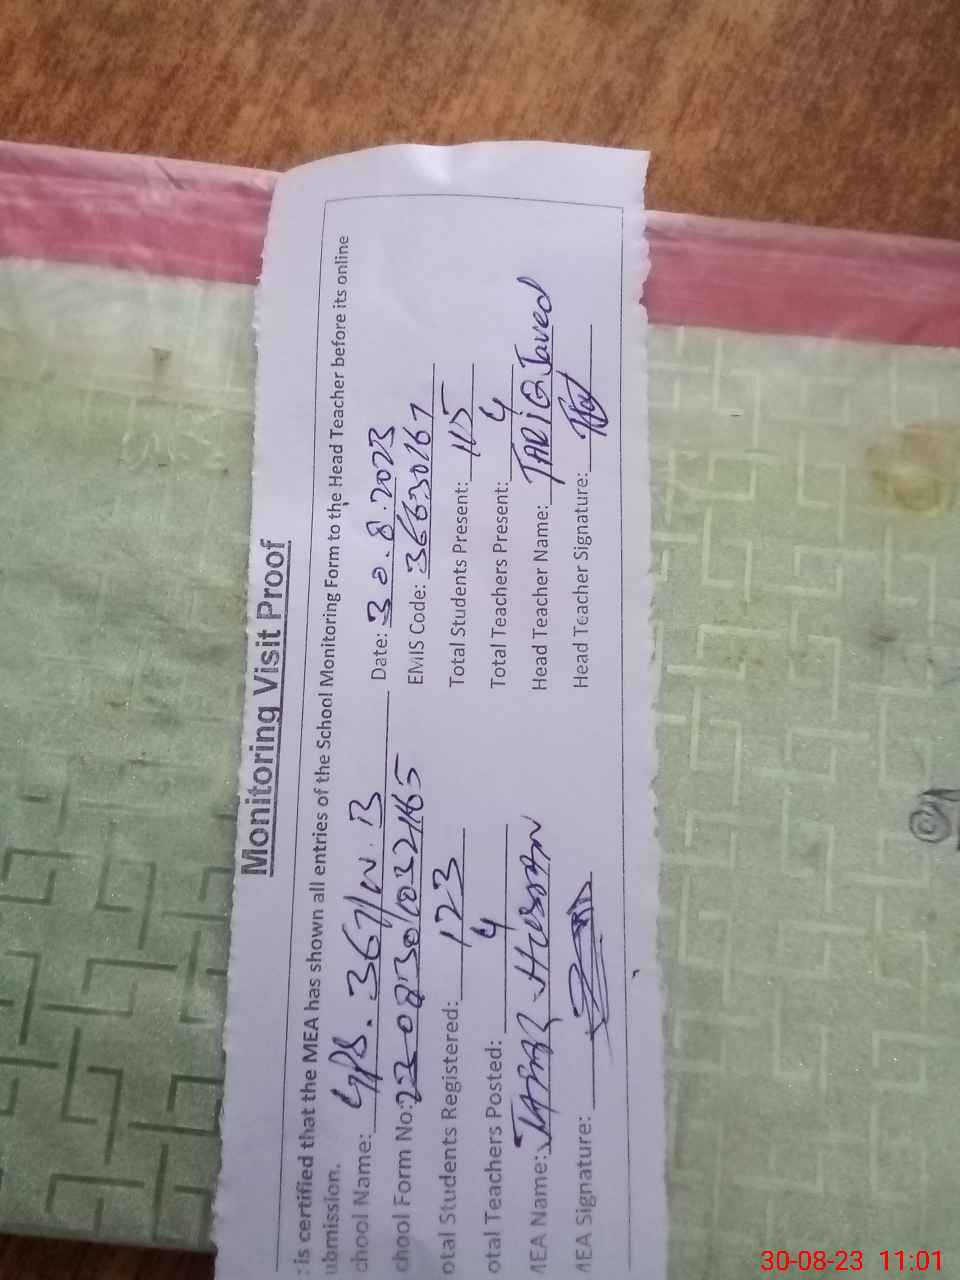 Monitoring Visit Proof
is certified that the MEA has shown all entries of the School Monitoring Form to the Head Teacher before its online
ubmission.
chool Name: GPS. 367/W.B Date: 30.8.2023
chool Form No: EMIS Code: 36630167
otal Students Registered: 123 Total Students Present: 115
otal Teachers Posted: 4 Total Teachers Present: 4
MEA Name: Hussain Head Teacher Name: TARIQ Javed
MEA Signature: Head Teacher Signature:
30-08-23 11:01